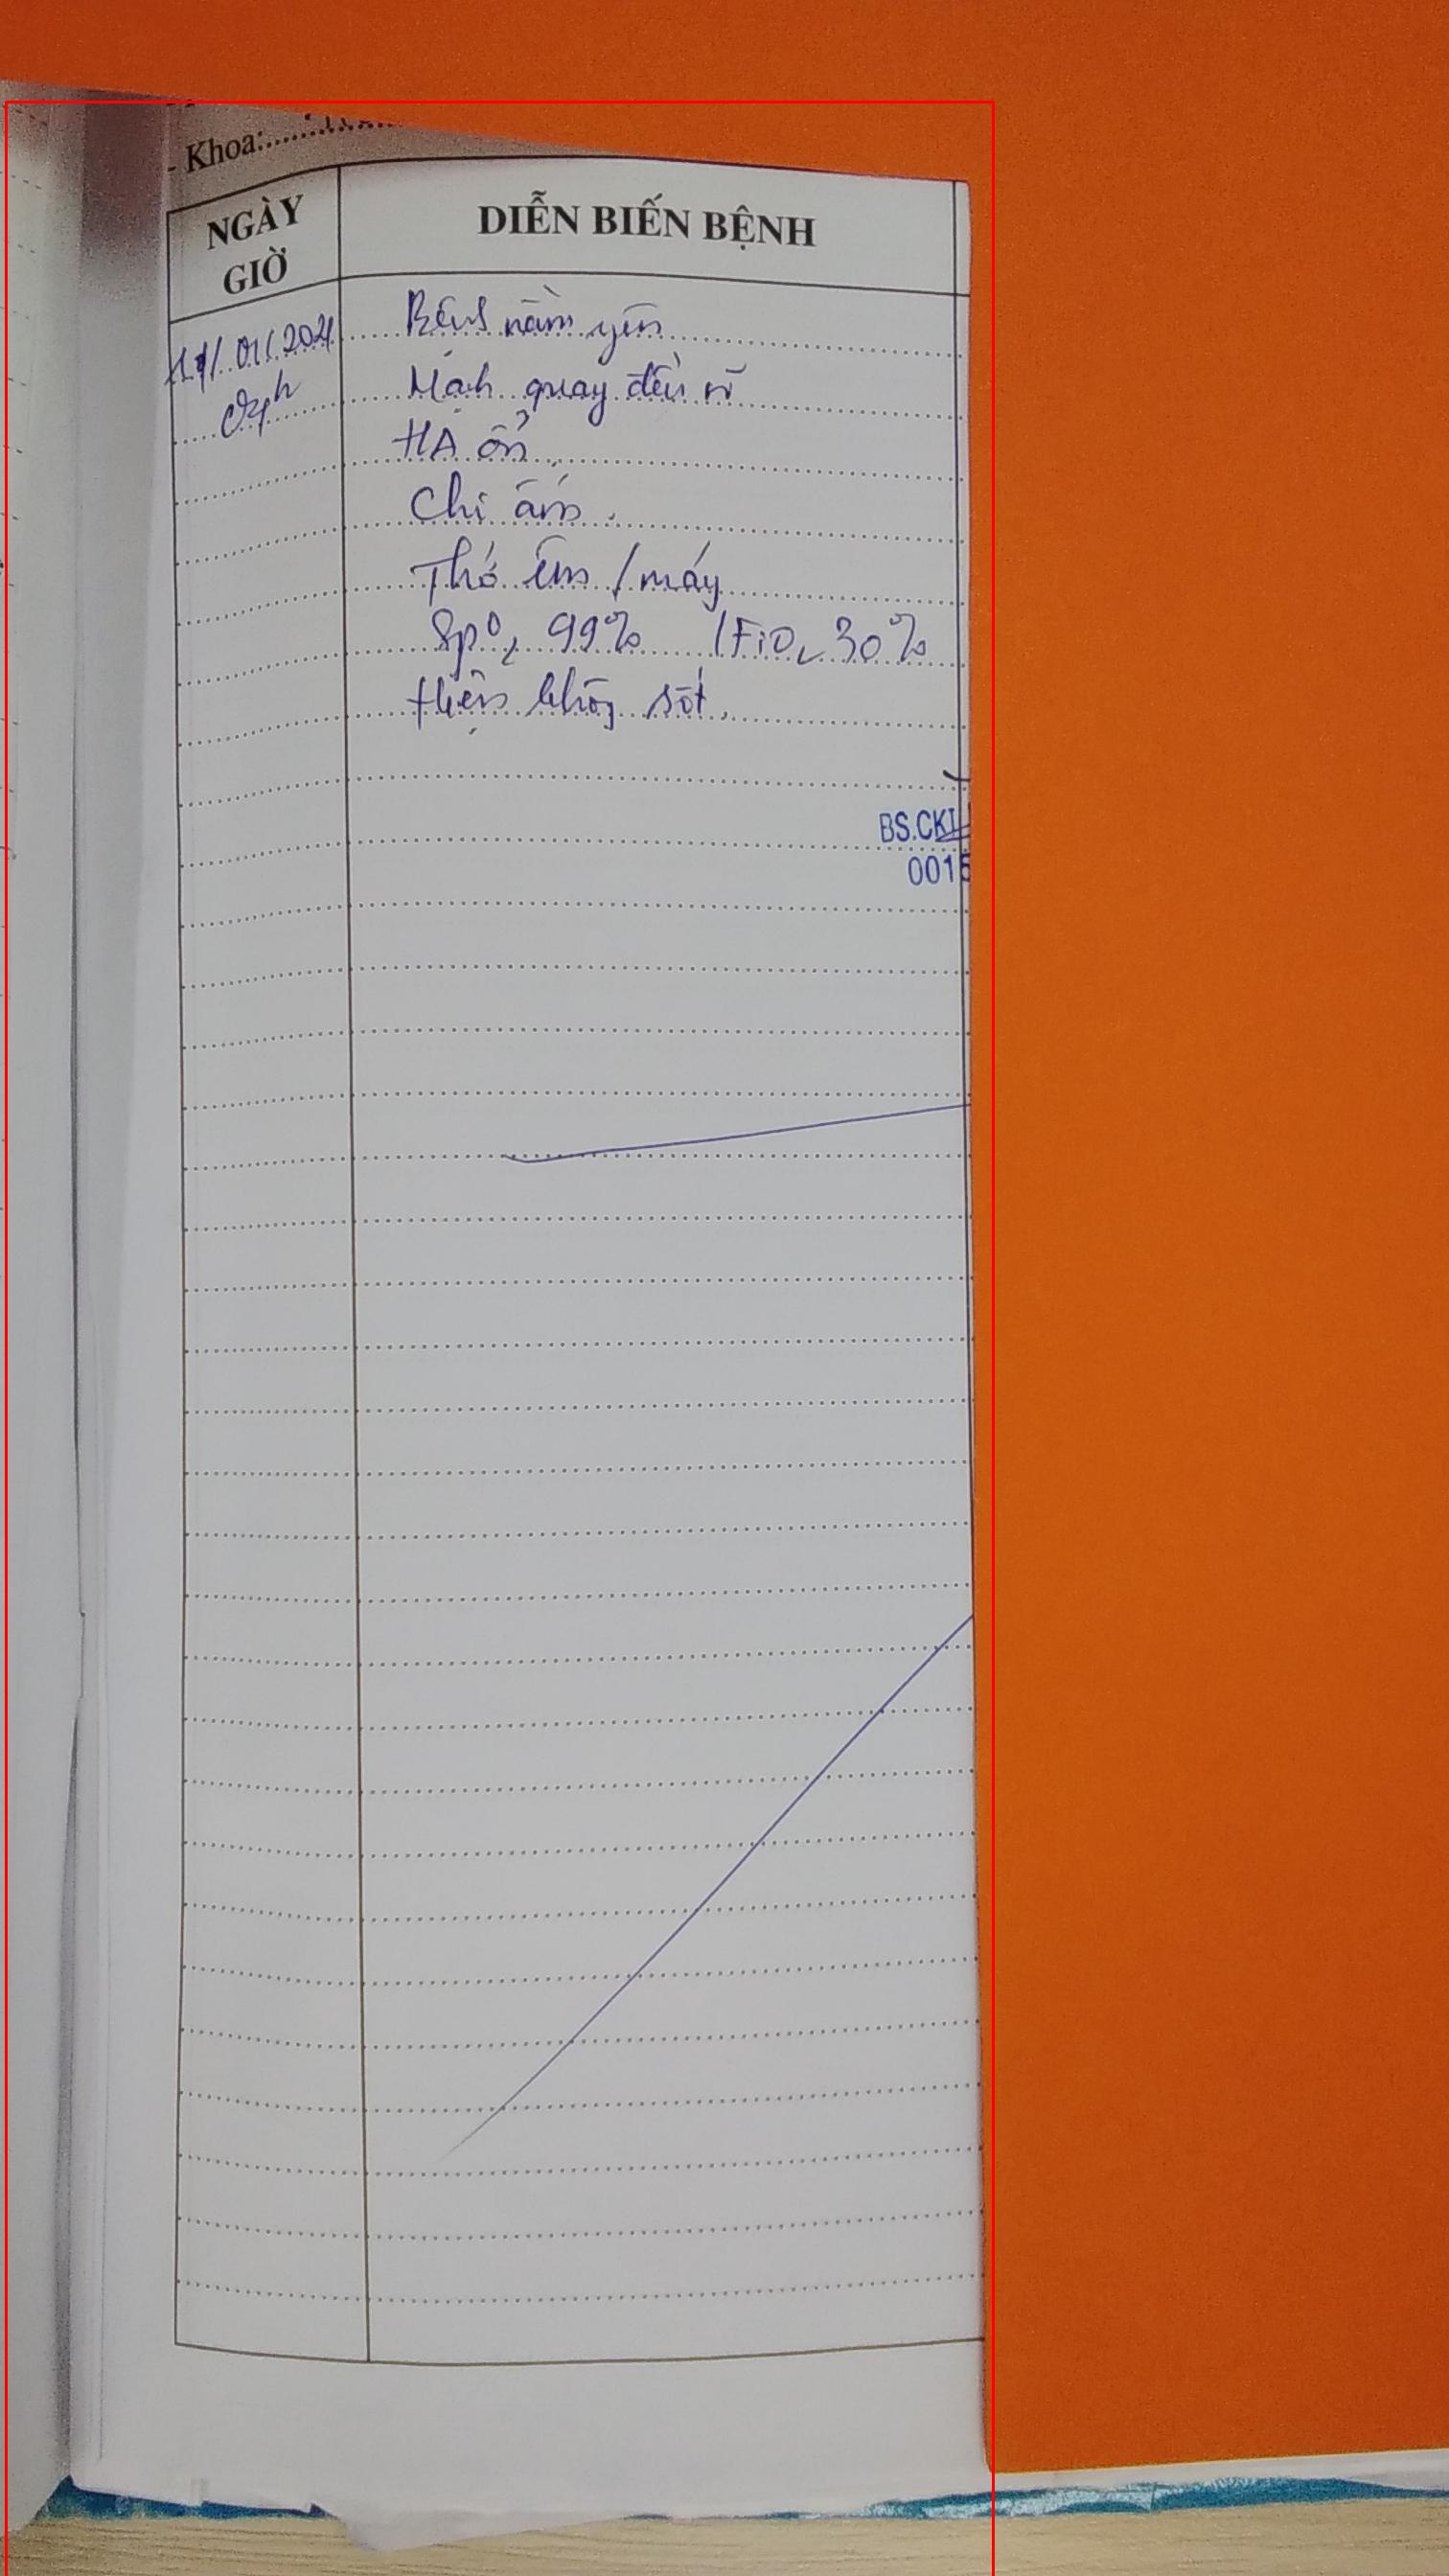 - Khoa:
NGÀY GIỜ
DIỄN BIẾN BỆNH
/01/2021
Bệnh nằm yên
Mạch quay đều rõ
HA ổn
Chi ấm.
Thở êm / máy
SpO2 99% /FiO2 30%
Hiện không sốt.
BS.CKI
0015